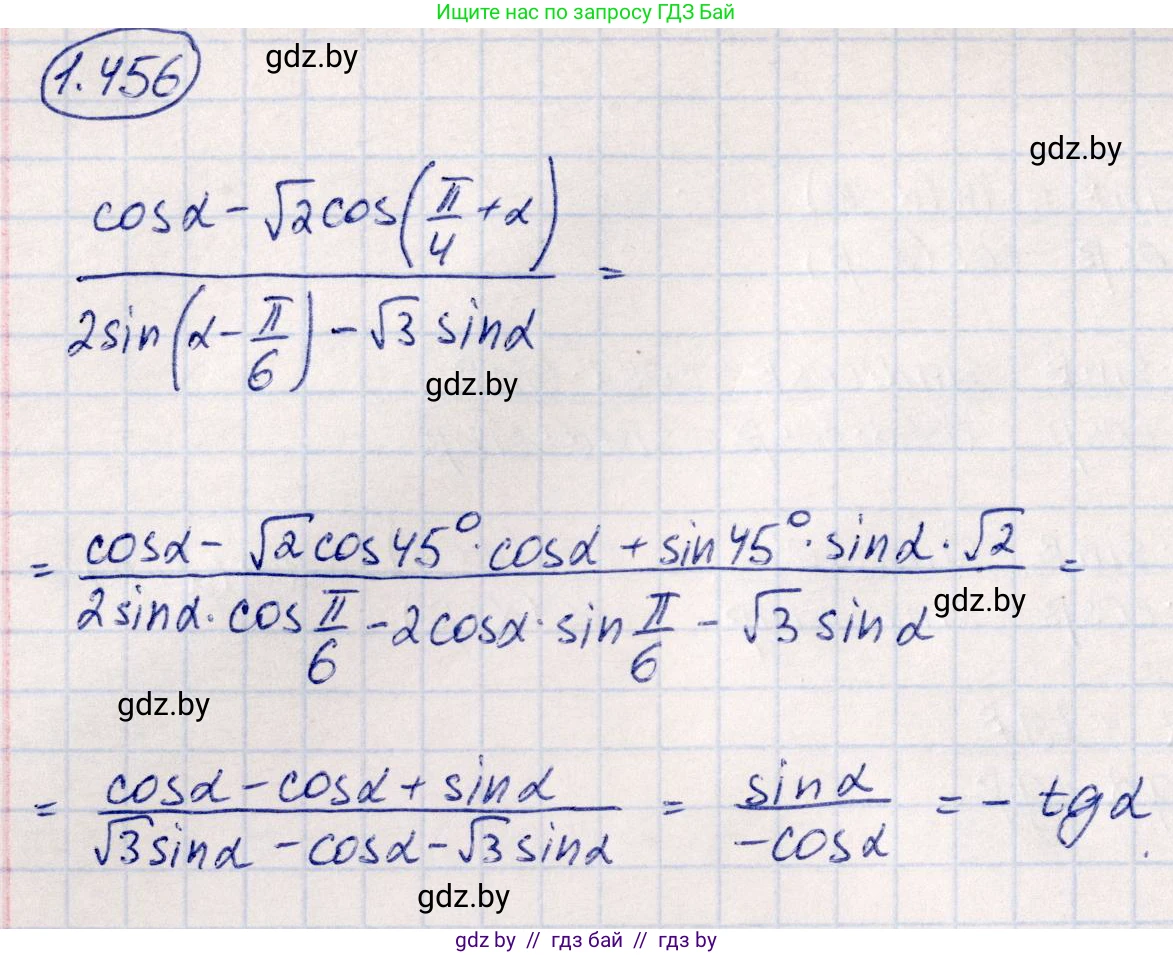 Ищите нас по запросу ГДЗ Бай
1.456
gdz.by
gdz.by
cosα - √2 cos(π/4 + α)
/ =
2sin(α - π/6) - √3 sinα
gdz.by
= cosα - √2 cos45° · cosα + sin45° · sinα · √2 / =
2sinα · cos π/6 - 2cosα · sin π/6 - √3 sinα
gdz.by
gdz.by
= cosα - cosα + sinα / √3 sinα - cosα - √3 sinα = sinα / -cosα = - tgα.
gdz.by
gdz by // гдз бай // гдз by